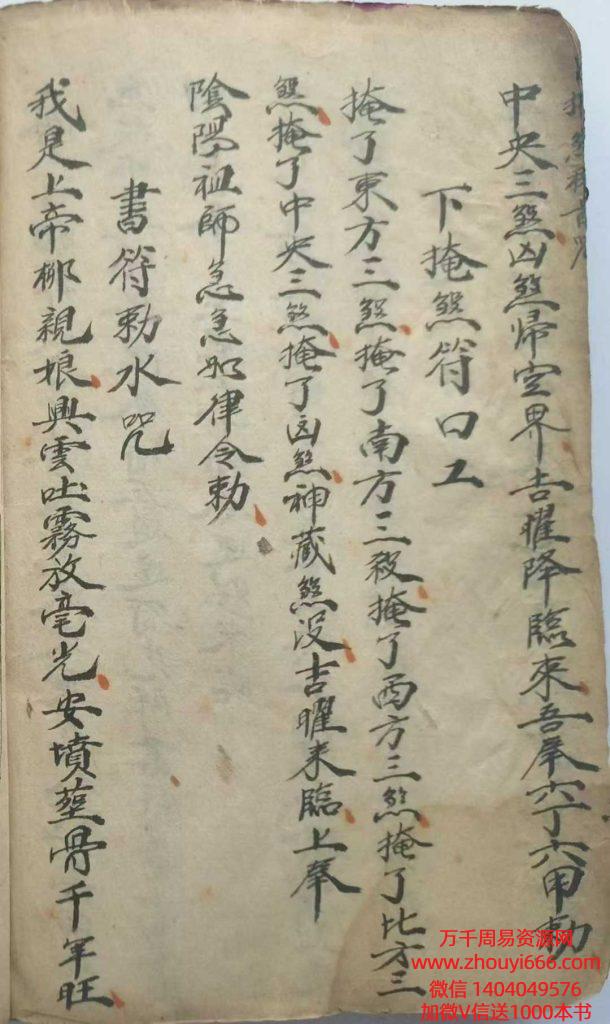 中央三煞凶煞歸空界吉曜降臨來吾奉六丁六甲勅
下掩煞符口工
掩了東方三煞掩了南方三殺掩了西方三煞掩了北方三
煞掩了中央三煞掩了凶煞神藏煞没吉曜来臨上奉
陰陽祖師急急如律令勅
書符勅水咒
我是上帝柳親娘興雲吐霧放毫光安墳塟骨千年旺
万千周易资源网
www.zhouyi666.com
微信 1404049576
加微V信送1000本书